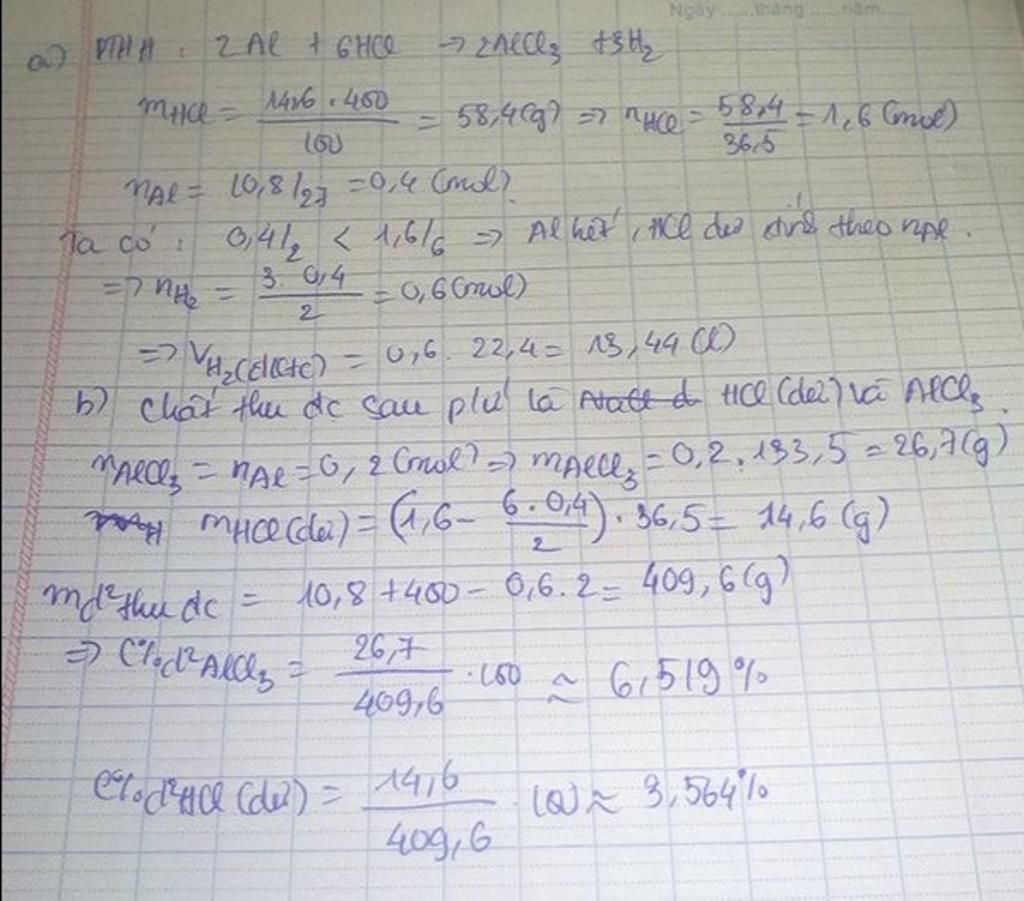 Ngày ......tháng ......năm......
a) PTHH : 2Al + 6HCl → 2AlCl₃ + 3H₂
mHCl = 14,6 . 400 / 100 = 58,4(g) => nHCl = 58,4 / 36,5 = 1,6 (mol)
nAl = 10,8/27 = 0,4 (mol).
Ta có : 0,4/2 < 1,6/6 => Al hết, HCl dư tính theo nAl.
=> nH₂ = 3. 0,4 / 2 = 0,6 (mol)
=> VH₂(đktc) = 0,6. 22,4 = 13,44 (l)
b) Chất thu đc sau pứ là HCl (dư) và AlCl₃.
nAlCl₃ = nAl = 0,2 (mol) => mAlCl₃ = 0,2.133,5 = 26,7(g)
mHCl(dư) = (1,6 - 6.0,4 / 2) . 36,5 = 14,6 (g)
md² thu đc = 10,8 + 400 - 0,6.2 = 409,6(g)
=> C%d²AlCl₃ = 26,7 / 409,6 .100 ≈ 6,519 %
C%d²HCl (dư) = 14,6 / 409,6 . 100 ≈ 3,564%